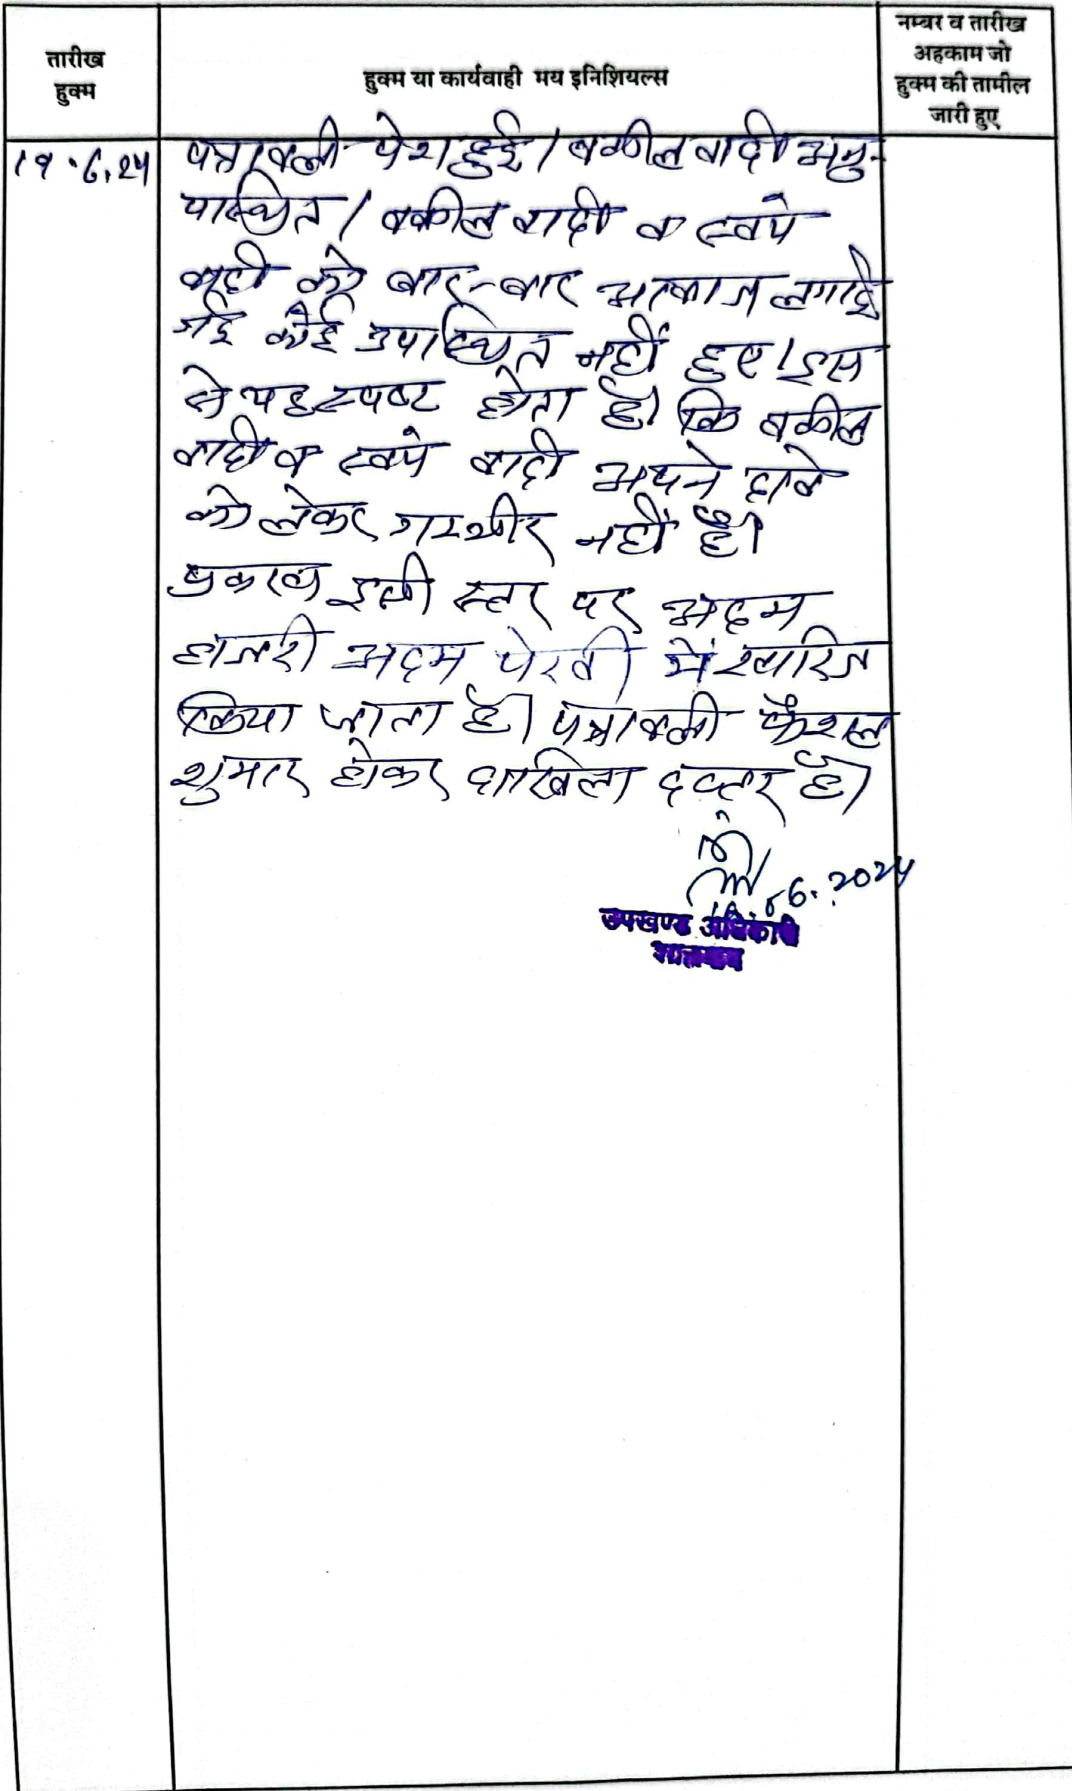 तारीख
हुक्म
हुक्म या कार्यवाही मय इनिशियल्स
नम्बर व तारीख
अहकाम जो
हुक्म की तामील
जारी हुए
19.6.24
पत्रावली पेश हुई। वकील वादी अनु-
पास्थित। वकील वादी व स्वयं
वादी को बार-बार आवाज लगाई
गई कोई उपास्थित नहीं हुए। इस
से यह स्पष्ट होता है। कि वकील
वादी व स्वयं वादी अपने दावे
को लेकर गम्भीर नहीं है।
प्रकरण इसी स्तर पर अदम
हाजरी अदम पेरवी में खारिज
किया जाता है। पत्रावली फैशल
शुमार होकर दाखिल दफ्तर हो।
6.2024
उपखण्ड अधिकारी